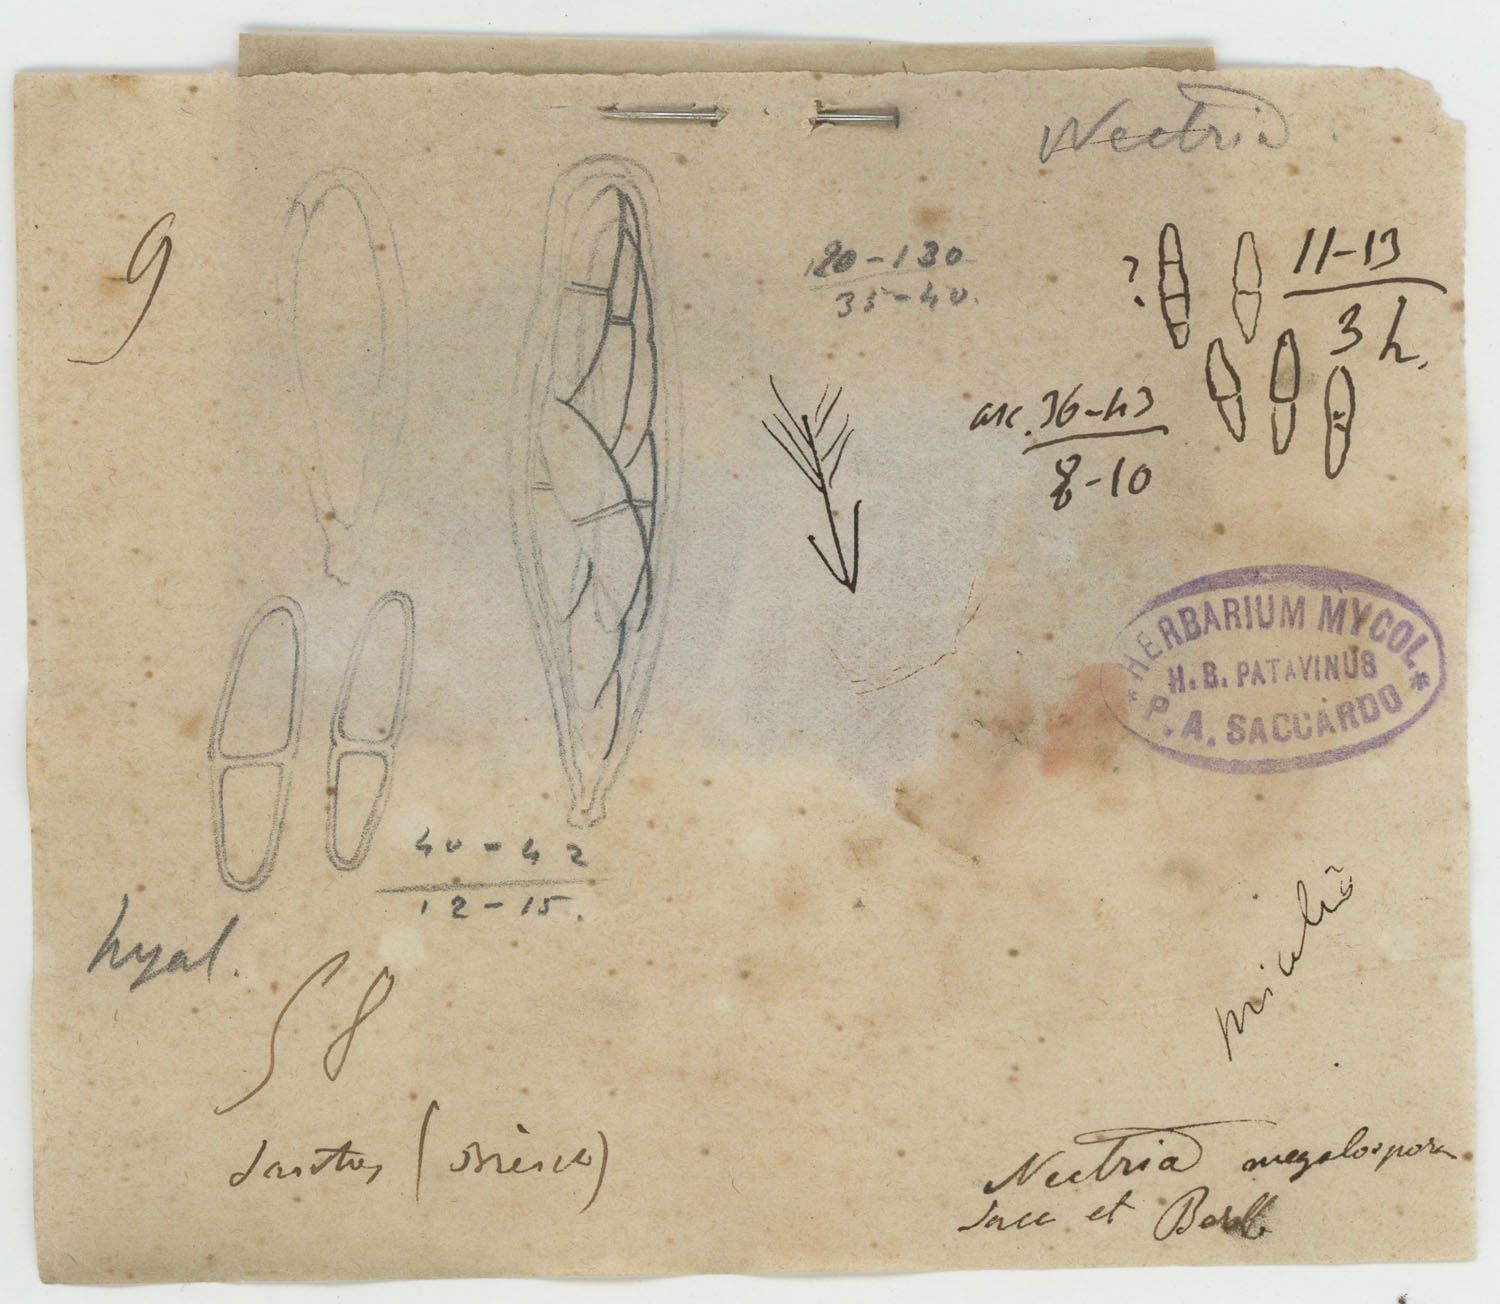 Nectria
9
120-130
35-40.
?
11-13
3 h.
asc. 36-43
8-10
HERBARIUM MYCOL.
H. B. PATAVINUS
* P. A. SACCARDO *
40-42
12-15.
hyal.
58
Santos (
Nectria megalospora
Sacc et Berl